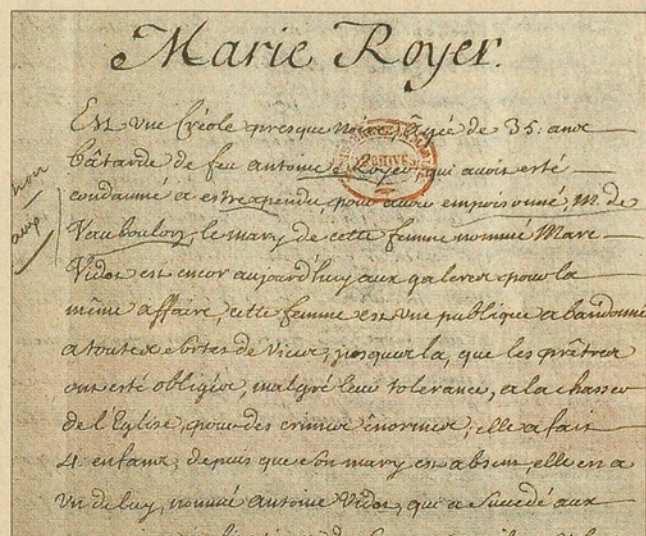 Marie Royer.
Est une Créole presque noire, âgée de 35: ans
bâtarde de feu antoine Royer, qui avoit esté
condamné a estre pendu, pour avoir empoisonné, M. de
Vauboulon, le mary de cette femme nommé Marc
Vidot est encor aujourd'huy aux galeres pour la
même affaire, cette femme est une publique abandonné
a toutes sortes de vices, jusques la, que les prêtres
ont esté obligés, malgré leur tolerance, a la chasser
de l'Eglise, pour des crimes énormes; elle a fait
4: enfans, depuis que son mary est absent, elle en a
un de luy, nommé antoine Vidot, qui a sucedé aux
non